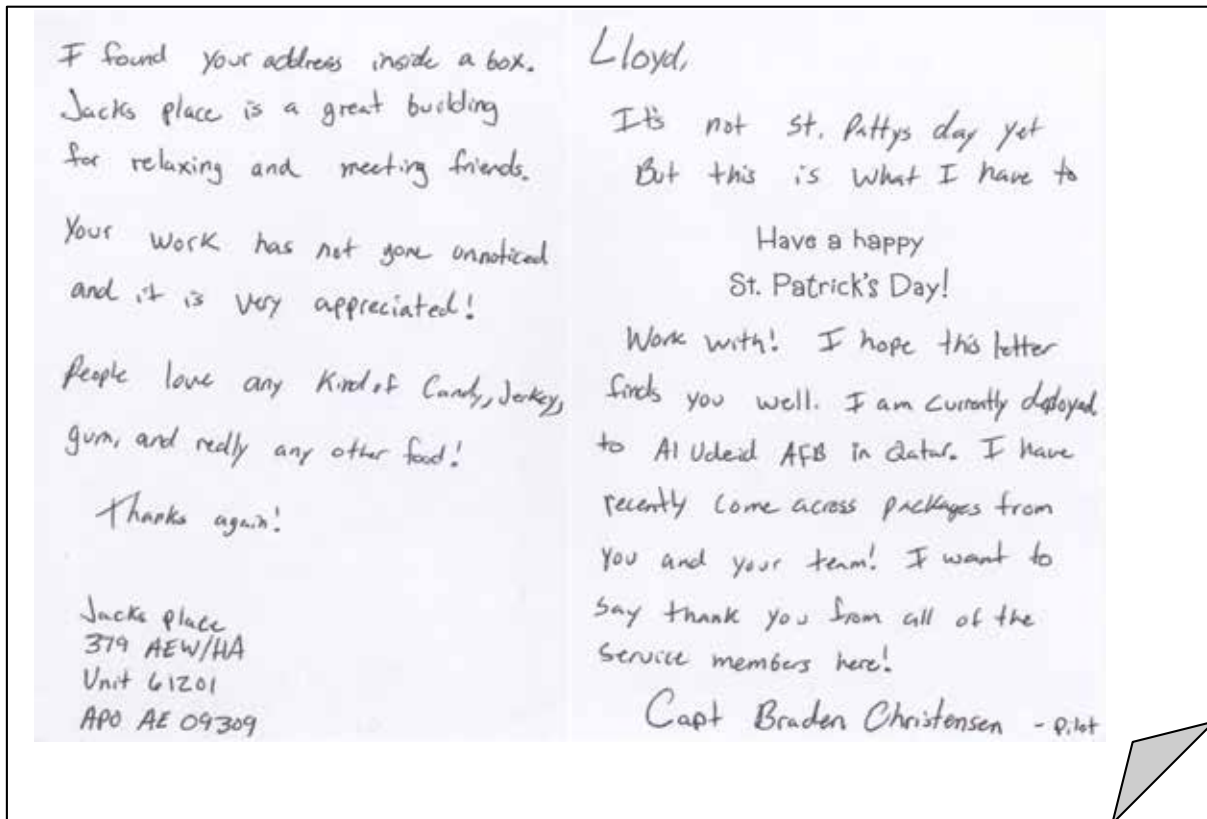 I found your address inside a box.
Jacks place is a great building
for relaxing and meeting friends.
Your work has not gone unnoticed
and it is very appreciated!
People love any kind of Candy, Jerkey,
gum, and really any other food!
Thanks again!
Jacks place
379 AEW/HA
Unit 61201
APO AE 09309
Lloyd,
It's not St. Pattys day yet
But this is what I have to
Have a happy
St. Patrick's Day!
Work with! I hope this letter
finds you well. I am currently deployed
to Al Udeid AFB in Qatar. I have
recently come across packages from
you and your team! I want to
say thank you from all of the
service members here!
Capt Braden Christensen - Pilot